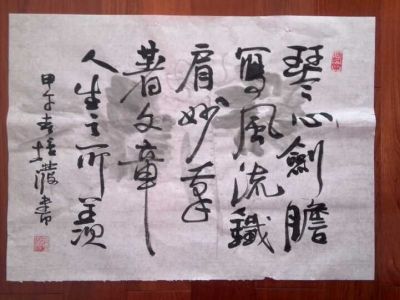 琴心劍膽
寫風流鐵
肩妙筆
著文章
人生之所羨
甲午春培書